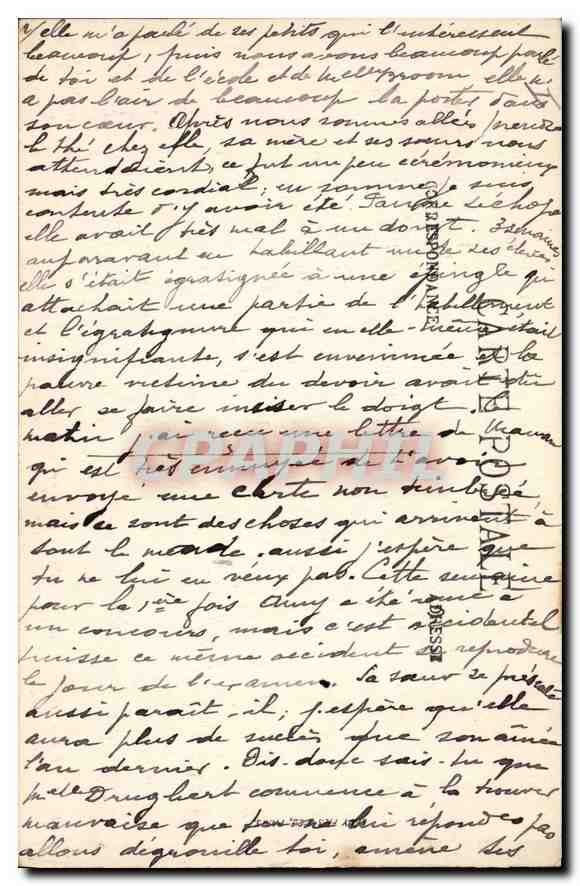 elle m'a parlé de ses petits qui l'intéressent
beaucoup, puis nous avons beaucoup parlé
de toi et de l'école et de Melle Broom, elle n'
a pas l'air de beaucoup la porter dans
son cœur. Après nous sommes allées prendre
le thé chez elle, sa mère et ses sœurs nous
attendaient, ce fut un peu cérémonieux
mais très cordial; en somme je suis
contente d'y avoir été. Pauvre
elle avait très mal à un doigt. 3 semaines
auparavant en habillant un de ses élèves
elle s'était égratignée à une épingle qui
attachait une partie de l'habillement
et l'égratignure qui en elle-même était
insignifiante, s'est envenimée et la
pauvre victime du devoir avait dû
aller se faire insiser le doigt. Ce
matin j'ai reçu une lettre de Maman
qui est très ennuyée de t'avoir
envoyé une carte non timbrée,
mais se sont des choses qui arrivent à
tout le monde, aussi j'espère que
tu ne lui en veux pas. Cette semaine
pour la 1ère fois Amy a été
un concours, mais c'est accidentel
puisse ce même accident se reproduire
le jour de l'examen. Sa sœur se présente
aussi paraît-il; j'espère qu'elle
aura plus de succès que son aînée
l'an dernier. Dis-donc sais-tu que
Melle Drughert commence à la trouver
mauvaise que tu ne lui répondes pas
allons dégrouille toi, amène ses
CORRESPONDANCE
CARTE POSTALE
ADRESSE
CPAPHIL